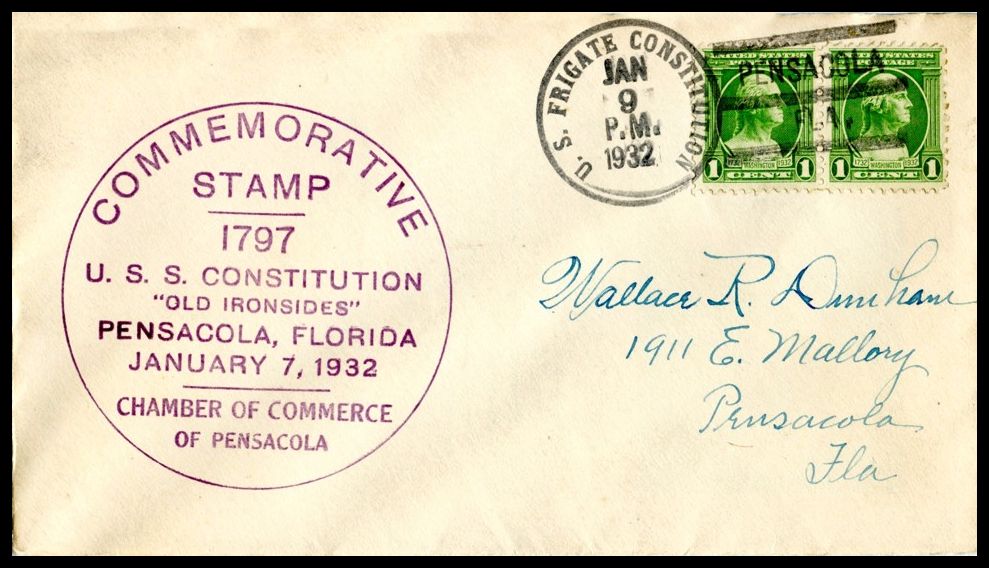 COMMEMORATIVE
STAMP
1797
U. S. S. CONSTITUTION
"OLD IRONSIDES"
PENSACOLA, FLORIDA
JANUARY 7, 1932
CHAMBER OF COMMERCE
OF PENSACOLA
U. S. FRIGATE CONSTITUTION
JAN
9
P.M.
1932
PENSACOLA
FLA.
UNITED STATES
POSTAGE
1732 WASHINGTON 1932
1 CENT 1
UNITED STATES
POSTAGE
1732 WASHINGTON 1932
1 CENT 1
Wallace R. Dunham
1911 E. Mallory
Pensacola
Fla